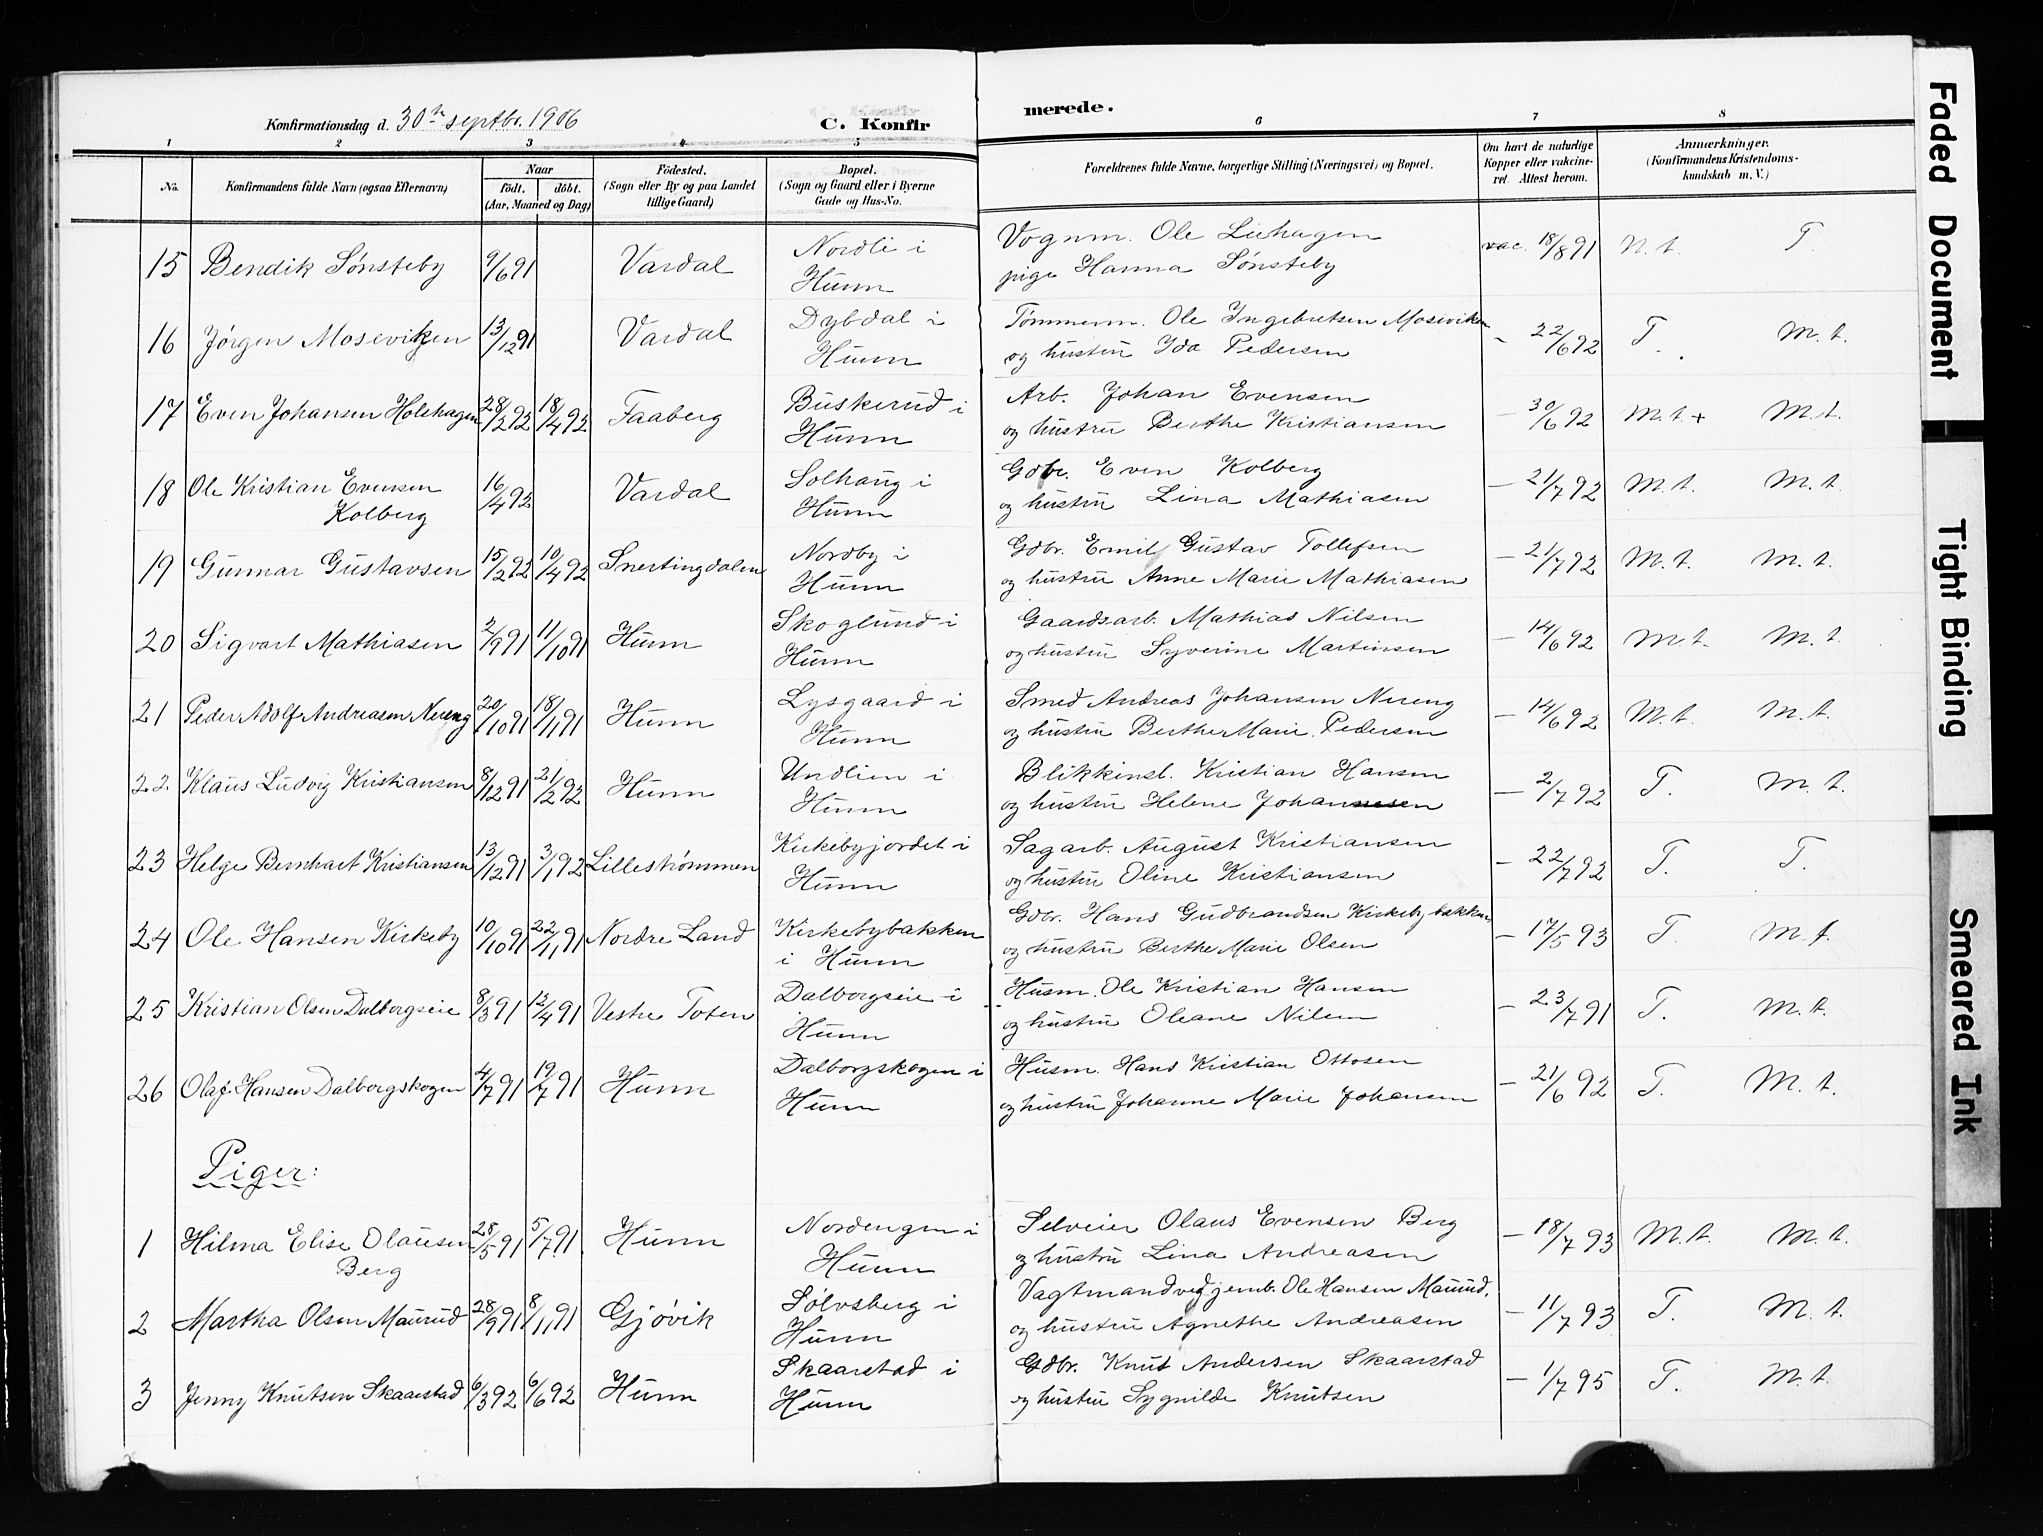 Konfirmationsdag d. 30te septbr. 1906
C. Konfirmerede.
1 2 3 4 5 6 7 8
No. Konfirmandens fulde Navn (ogsaa Efternavn) Naar født. døbt. (Aar, Maaned og Dag) Födested. (Sogn eller By og paa Landet tillige Gaard) Bopæl. (Sogn og Gaard eller i Byerne Gade og Hus-No. Forældrenes fulde Navne, borgerlige Stilling (Næringsvei) og Bopæl. Om havt de naturlige Kopper eller vakcineret. Attest herom. Anmærkninger. (Konfirmandens Kristendomskundskab m. V.)
15 Bendik Sønsteby 9/6 91 Vardal Nordli i Hunn Vognm. Ole Liehagen pige Hanna Sønsteby vac. 18/8 91 N. t. T.
16 Jørgen Moseviken 13/12 91 Vardal Dybdal i Hunn Tømmerm. Ole Ingebretsen Moseviken og hustru Ida Pedersen - 22/6 92 T. M. t.
17 Even Johansen Holehagen 28/2 92 18/4 92 Faaberg Buskerud i Hunn Arb. Johan Evensen og hustru Berthe Kristiansen - 30/6 92 M. t. + M. t.
18 Ole Kristian Evensen Kolberg 16/4 92 Vardal Solhaug i Hunn Gdbr. Even Kolberg og hustru Lina Mathiasen - 21/7 92 M. t. M. t.
19 Gunnar Gustavsen 15/2 92 10/4 92 Snertingdalen Nordby i Hunn Gdbr. Emil Gustav Tollefsen og hustru Anne Marie Mathiasen - 21/7 92 M. t. M. t.
20 Sigvart Mathiasen 2/9 91 11/10 91 Hunn Skoglund i Hunn Gaardsarb. Mathias Nilsen og hustru Syverine Martinsen - 14/6 92 M. t. M. t.
21 Peder Adolf Andreasen Nereng 20/10 91 18/1 91 Hunn Lysgaard i Hunn Smed Andreas Johansen Nereng og hustru Berthe Marie Pedersen - 14/6 92 M. t. M. t.
22. Klaus Ludvig Kristiansen 8/12 91 21/2 92 Hunn Undlien i Hunn Blikkinsl. Kristian Hansen og hustru Helene Johannesen - 2/7 92 T. M. t.
23 Helge Bernhart Kristiansen 13/12 91 3/1 92 Lillestrømmen Kirkebyjordet i Hunn Sagarb. August Kristiansen og hustru Oline Kristiansen - 22/7 92 T. T.
24 Ole Hansen Kirkeby 10/10 91 22/1 91 Nordre Land Kirkebybakken i Hunn Gdbr. Hans Gudbrandsen Kirkebybakken og hustru Berthe Marie Olsen - 17/5 93 T. M. t.
25 Kristian Olsen Dalborgseie 8/3 91 12/4 91 Vestre Toten Dalborgseie i Hunn Husm. Ole Kristian Hansen og hustru Oleane Nilsen - 23/7 91 T. M. t.
26 Olaf Hansen Dalborgskogen 4/7 91 19/7 91 Hunn Dalborgskogen i Hunn Husm. Hans Kristian Ottosen og hustru Johanne Marie Johansen - 21/6 92 T. M. t.
Piger:
1 Hilma Elise Olausen Berg 28/5 91 5/7 91 Hunn Nordengen i Hunn Selveier Olaus Evensen Berg og hustru Lina Andreasen - 18/7 93 M. t. M. t.
2 Martha Olsen Maurud 28/9 91 8/1 91 Gjøvik Sølvsberg i Hunn Vagtmand ved jernb. Ole Hansen Maurud, og hustru Agnethe Andreasen - 11/7 93 T. M. t.
3 Jenny Knutsen Skaarstad 6/3 92 6/6 92 Hunn Skaarstad i Hunn Gdbr. Knut Andersen Skaarstad og hustru Sygnilde Knutsen - 1/7 95 T. M. t.
Faded Document
Tight Binding
Smeared Ink